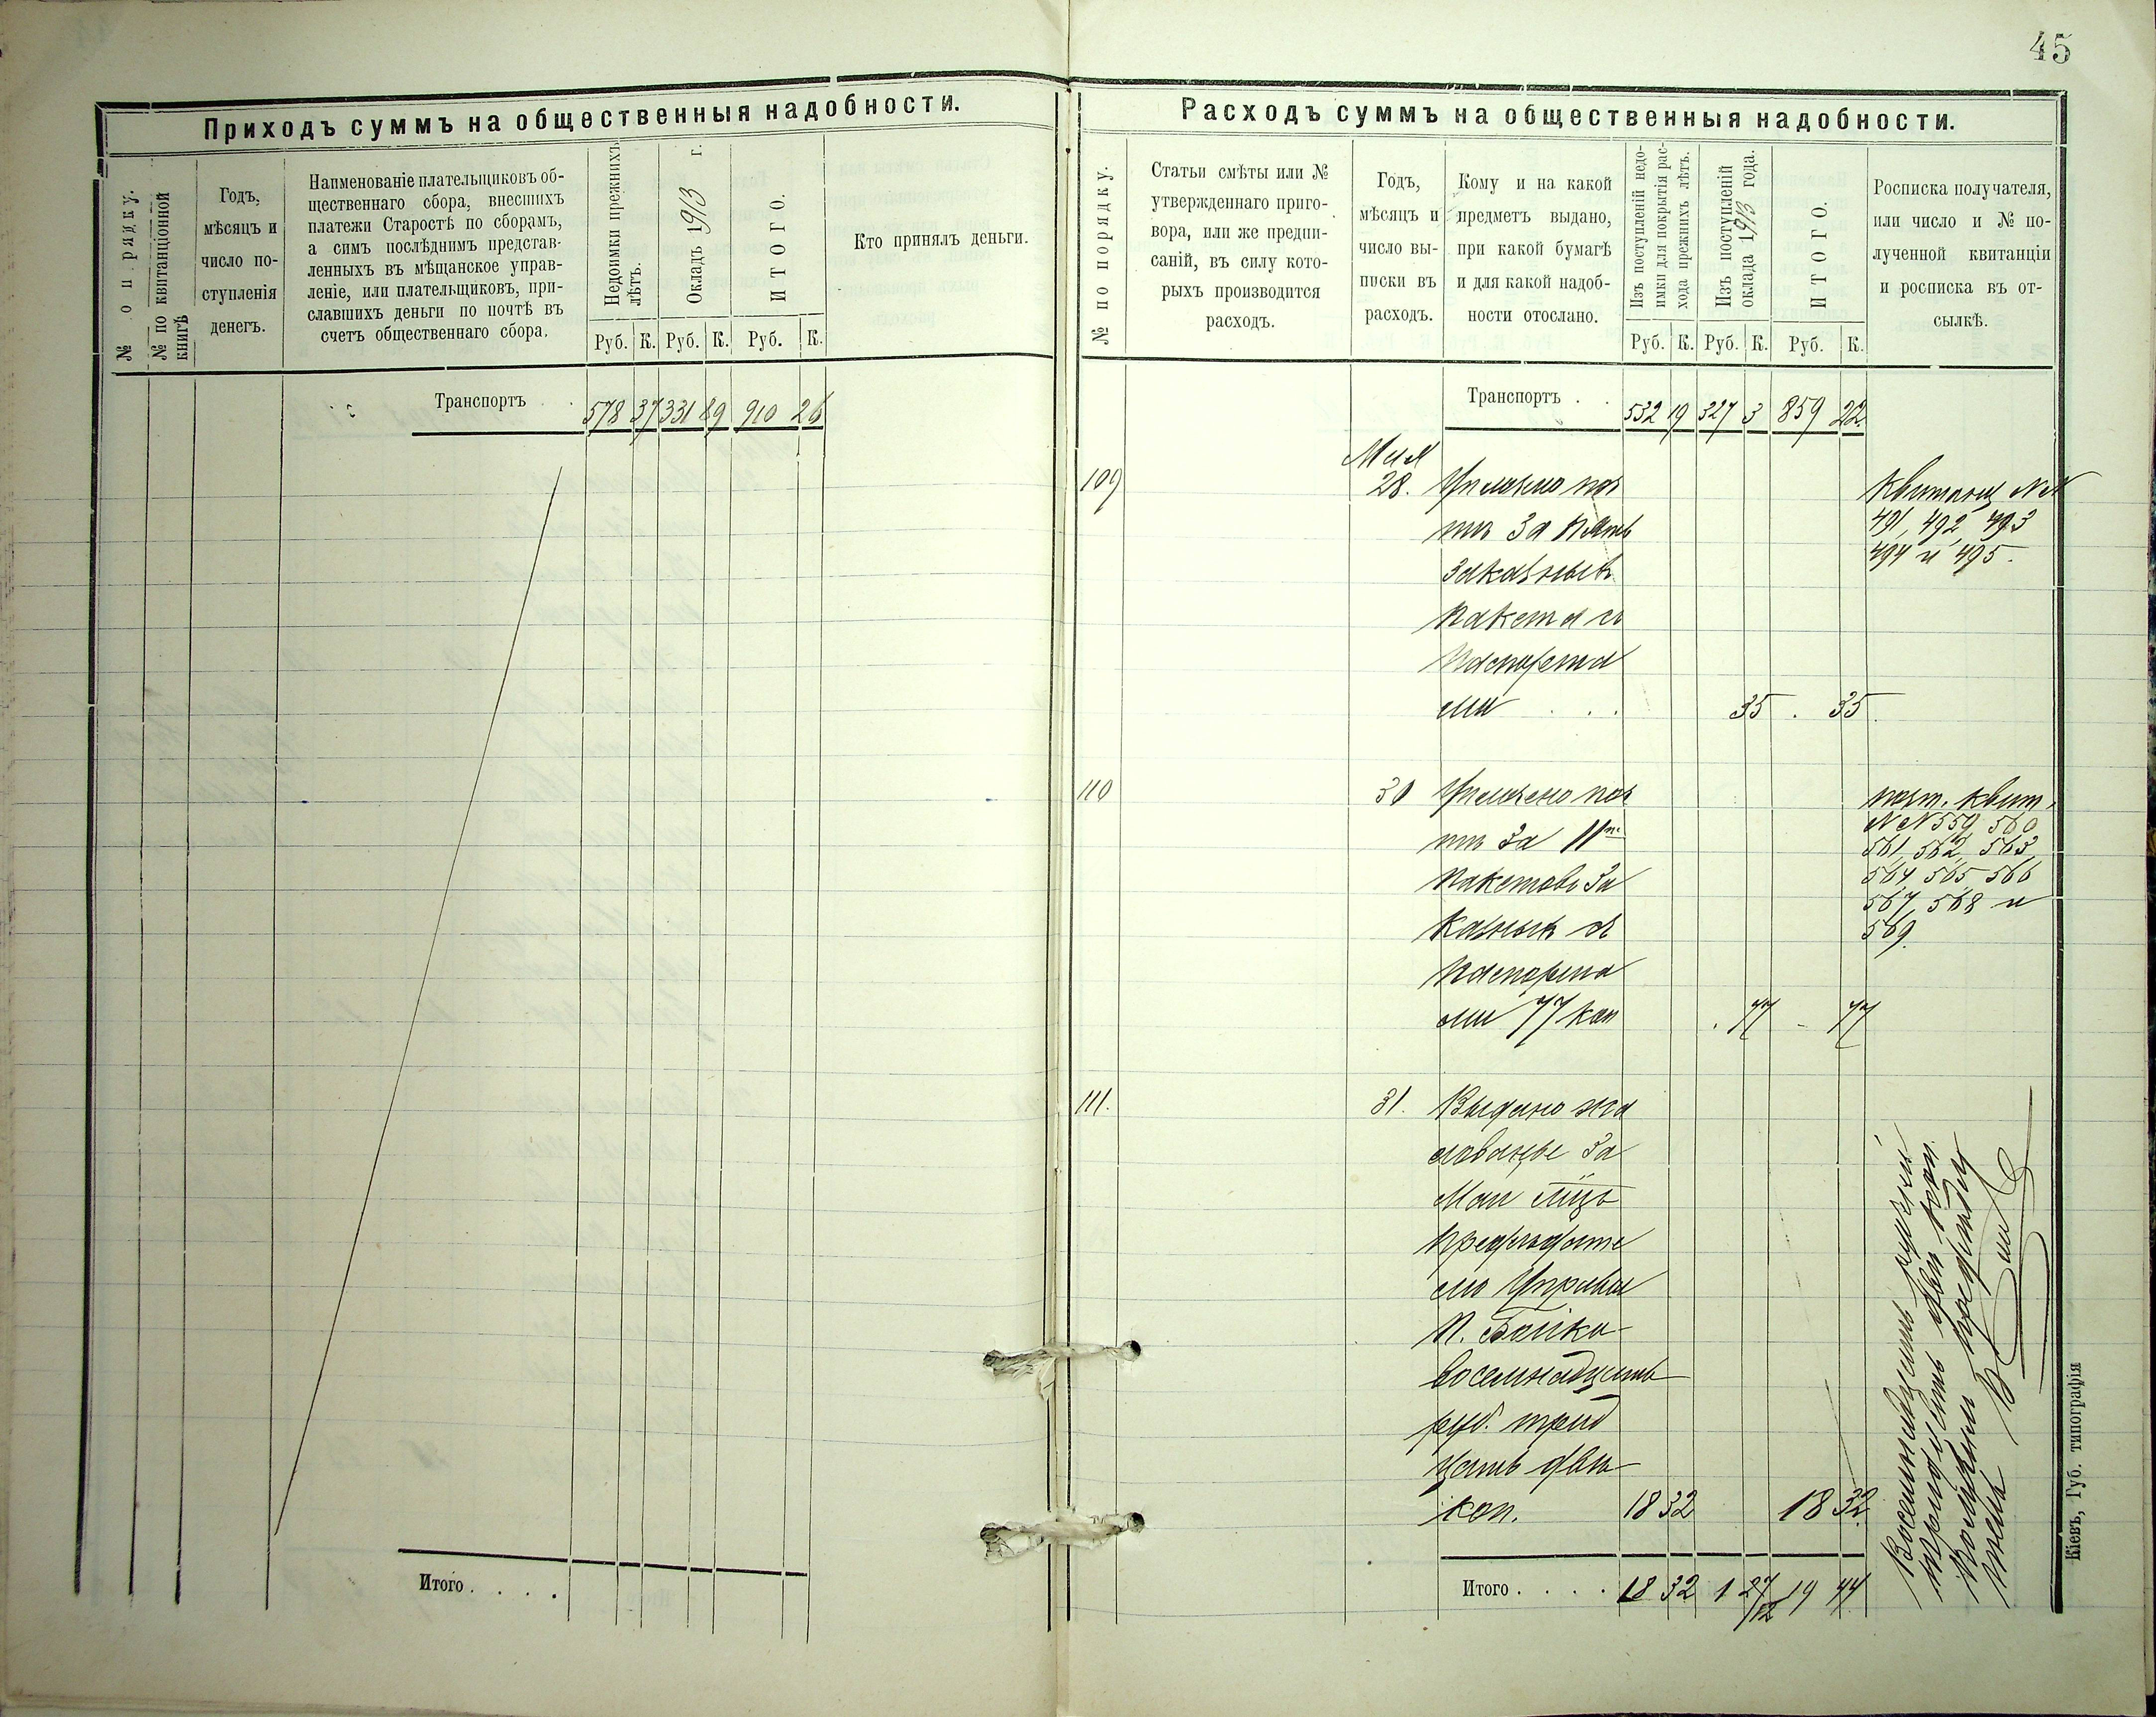 45
Приходъ суммъ на общественныя надобности.
№ по порядку.
№ по квитанціонной
книгѣ
Годъ,
мѣсяцъ и
число по-
ступленія
денегъ.
Наименованіе плательщиковъ об-
щественнаго сбора, внесшихъ
платежи Старостѣ по сборамъ,
а симъ послѣднимъ представ-
ленныхъ въ мѣщанское управ-
леніе, или плательщиковъ, при-
славшихъ деньги по почтѣ въ
счетъ общественнаго сбора.
Недоимки прежнихъ
лѣтъ.
Окладъ 1913 г.
ИТОГО.
Руб. К. Руб. К. Руб. К.
Кто принялъ деньги.
Транспортъ 578 37 331 89 910 26
Итого . . . .
Расходъ суммъ на общественныя надобности.
№ по порядку.
Статьи смѣты или №
утвержденнаго приго-
вора, или же предпи-
саній, въ силу кото-
рыхъ производится
расходъ.
Годъ,
мѣсяцъ и
число вы-
писки въ
расходъ.
Кому и на какой
предметъ выдано,
при какой бумагѣ
и для какой надоб-
ности отослано.
Изъ поступленій недо-
имки для покрытія рас-
хода прежнихъ лѣтъ.
Изъ поступленій
оклада 1913 года.
ИТОГО.
Руб. К. Руб. К. Руб. К.
Росписка получателя,
или число и № по-
лученной квитанціи
и росписка въ от-
сылкѣ.
Транспортъ . . 532 19 327 3 859 22
Мая
109 28. Уплачено поч
тѣ За пять
Заказныхъ
пакета съ
паспорта
ми . . . 35 . 35.
Квитанц NN
491, 492, 493
494 и 495.
110 30 Уплачено поч
тѣ За 11ть
пакетовъ За
казныхъ съ
паспорта
ми 77 коп . 77 - 77
почт. квит.
NN 559, 560
561, 562, 563
564, 565 566
567, 568 и
569.
111. 31. Выдано жа
лованье За
Май мцъ
предсѣдате
лю Управы
П. Бойко
восемнадцать
руб. трид
цать двѣ
коп. 18 32 18 32
Восемнадцать рублей
тридцать двѣ коп.
получилъ Предсѣда
тель
Итого . . . . 18 32 1 27/12 19 44
Кіевъ, Губ. типографія